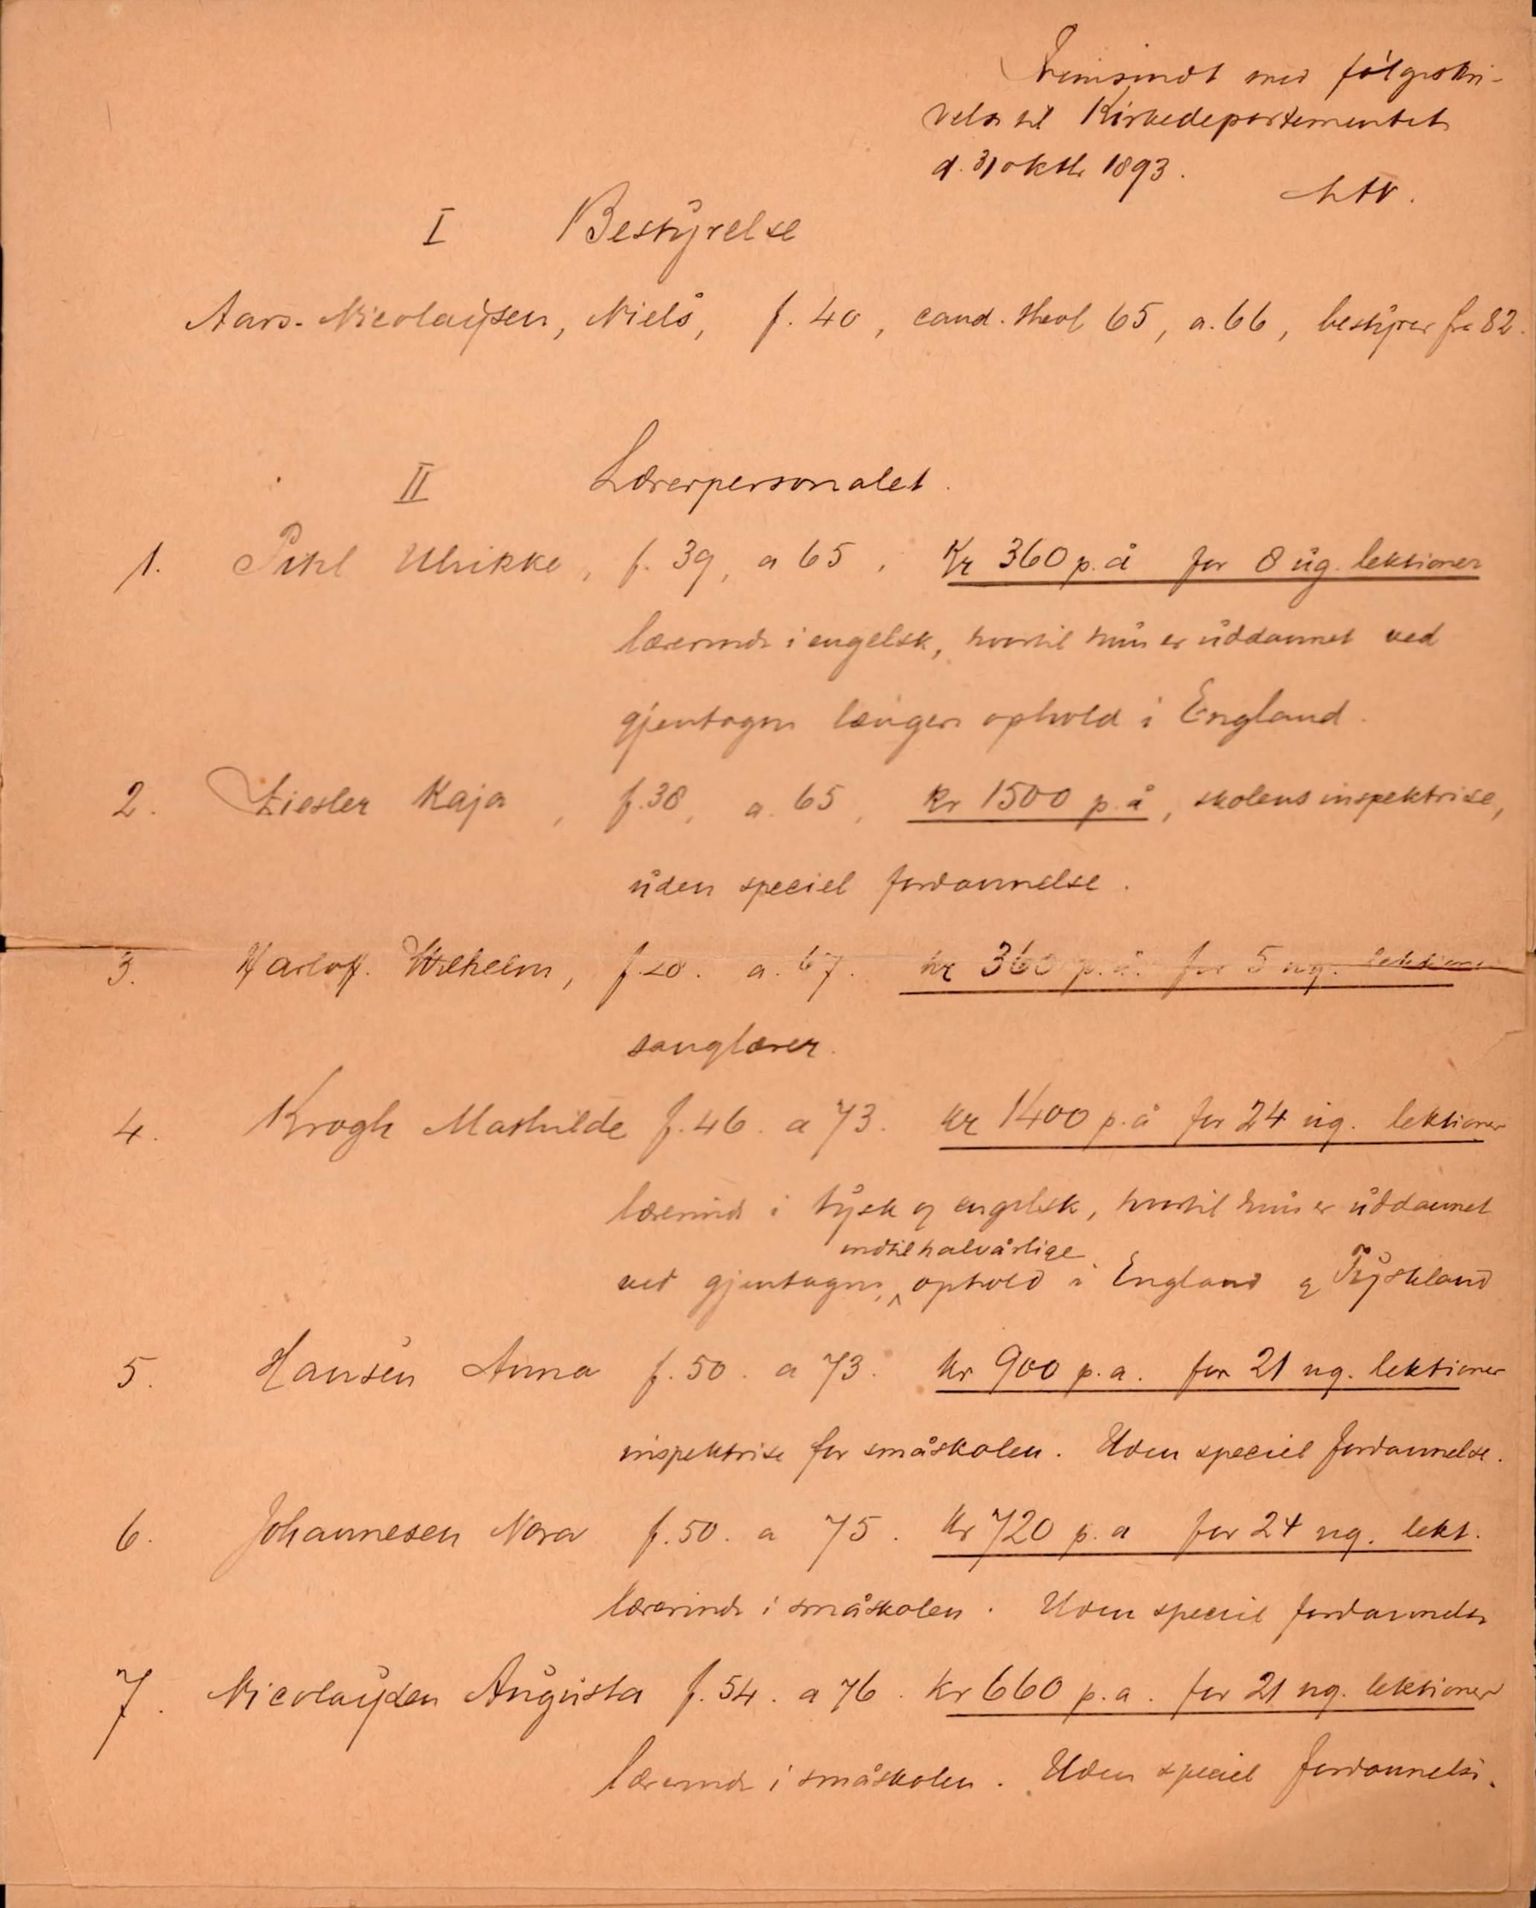 Fremsendt med følgeskri-
velse til Kirkedepartementet
d. 31 oktbr 1893.
I Bestyrelse
Aars-Nicolaysen, Niels, f. 40, cand. theol 65, a. 66, bestyrer fra 82.
II Lærerpersonalet.
1. Pihl Ulrikke, f. 39, a 65, Kr 360 p. å for 8 ug. lektioner
lærerinde i engelsk, hvortil hun er uddannet ved
gjentagne længere ophold i England.
2. Ziesler Kaja, f. 38, a. 65, kr 1500 p. å, skolens inspektrise,
uden speciel fordannelse.
3. Harloff. Wilhelm, f. 20. a. 67. kr 360 p. å. for 5 ug. lektioner
sanglærer.
4. Krogh Mathilde f. 46. a 73. kr 1400 p. å for 24 ug. lektioner
lærerinde i tysk og engelsk, hvortil hun er uddannet
indtil halvårlige
ved gjentagne, ophold i England og Tyskland
5. Hansen Anna f. 50. a 73. kr 900 p. a. for 21 ug. lektioner
inspektrise for småskolen. Uden speciel fordannelse.
6. Johannesen Nora f. 50. a 75. kr 720 p. a for 24 ug. lekt.
lærerinde i småskolen. Uden speciel fordannelse
7. Nicolaysen Augusta f. 54. a 76. kr 660 p. a. for 21 ug. lektioner
lærerinde i småskolen. Uden speciel fordannelse.